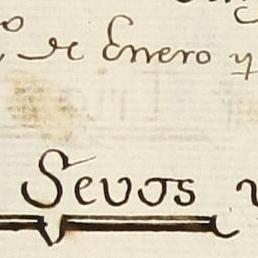 º de Enero y
Sevos